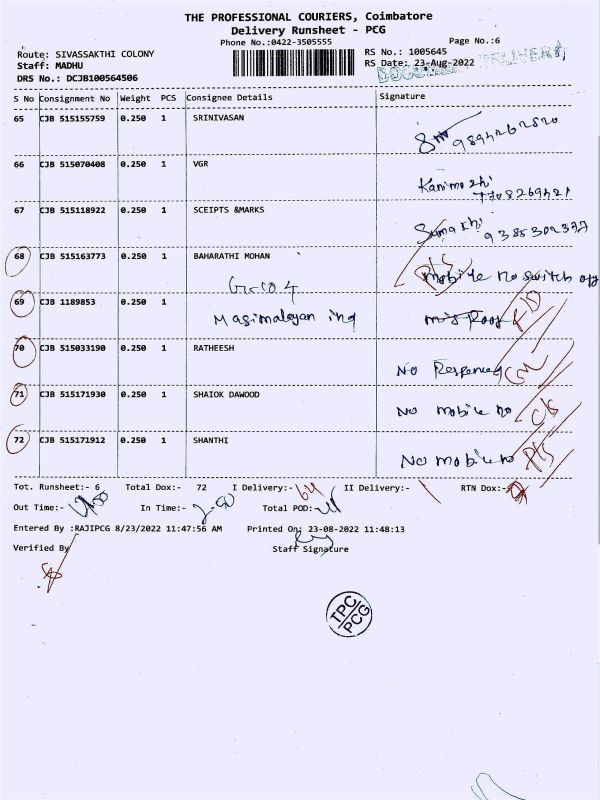 THE PROFESSIONAL COURIERS, Coimbatore
Delivery Runsheet - PCG
Phone No.:0422-3505555
Page No.:6
Route: SIVASSAKTHI COLONY
RS No.: 1005645
Staff: MADHU
RS Date: 23-Aug-2022
DRS No.: DCJB100564506
S No Consignment No Weight PCS Consignee Details Signature
65 CJB 515155759 0.250 1 SRINIVASAN
9894262820
66 CJB 515070408 0.250 1 VGR
Kanimozhi
7708269421
67 CJB 515118922 0.250 1 SCEIPTS &MARKS
Sumathi
9385302377
68 CJB 515163773 0.250 1 BAHARATHI MOHAN P/S mobile no switch off
69 CJB 1189853 0.250 1
70 CJB 515033190 0.250 1 RATHEESH
No Response
71 CJB 515171930 0.250 1 SHAIOK DAWOOD
No mobile no C/S
72 CJB 515171912 0.250 1 SHANTHI
No mobile no P/S
Tot. Runsheet:- 6 Total Dox:- 72 I Delivery:- 64 II Delivery:- RTN Dox:-
Out Time:- In Time:- 2.50 Total POD:-
Entered By :RAJIPCG 8/23/2022 11:47:56 AM Printed On: 23-08-2022 11:48:13
Verified By Staff Signature
TPC
PCG